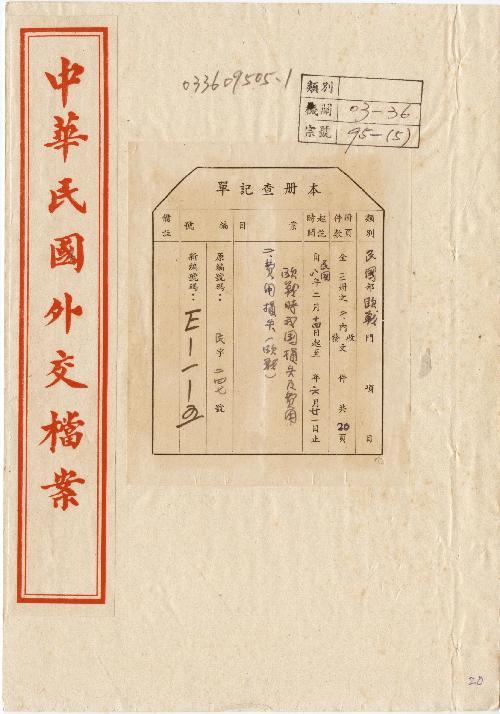 中華民國外交檔案
033609505-1
類別
機關 03-36
宗號 95-(5)
本册查記單
類別 民國部歐戰門 項 目
册頁件數 全三册之二、內收發文 件共20頁
起訖時間 自民國八年二月十四日起至 年六月廿一日止
案目 歐戰時我国損失及費用
二、費用損失(歐戰)
編號 原編號碼:民字二四七號
新編號碼:E-1-1-2
備註
20